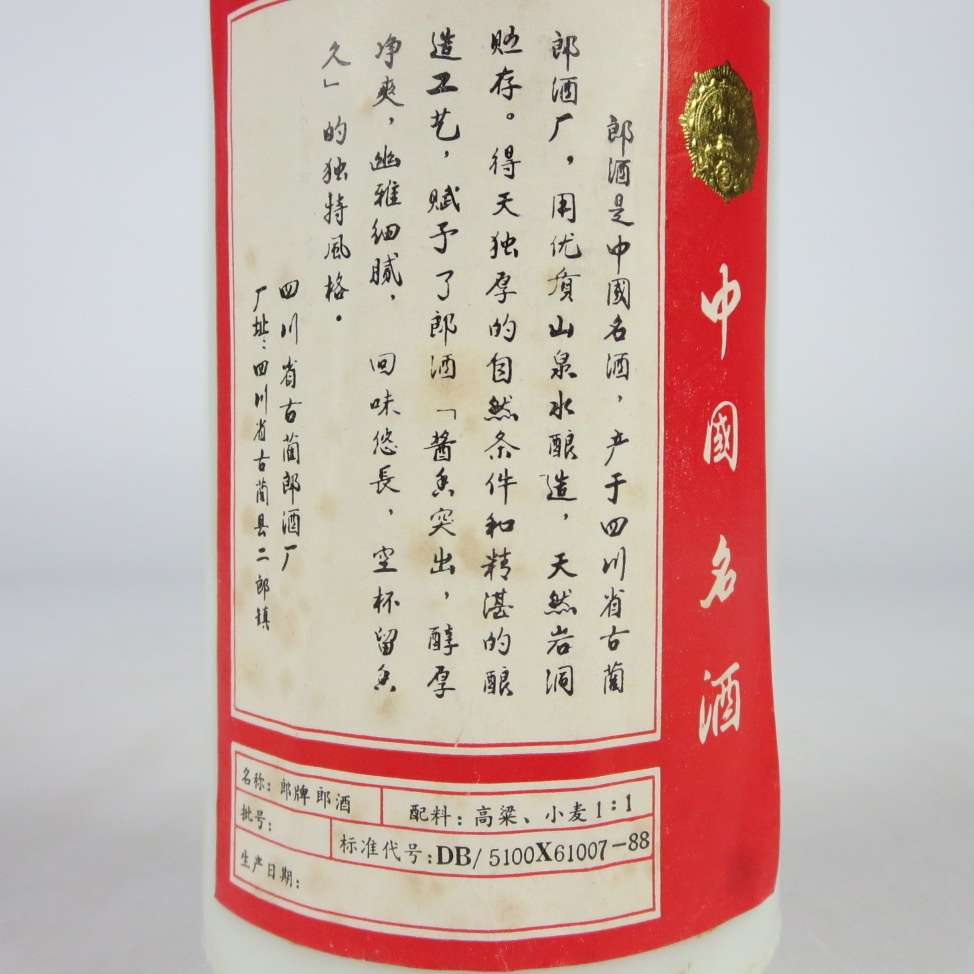 中國名酒
郎酒是中國名酒，产于四川省古蔺
郎酒厂，用优质山泉水酿造，天然岩洞
贮存。得天独厚的自然条件和精湛的酿
造工艺，赋予了郎酒「酱香突出，醇厚
净爽，幽雅细腻，回味悠長，空杯留香
久」的独特風格。
四川省古蔺郎酒厂
厂址：四川省古蔺县二郎镇
名称：郎牌郎酒
配料：高粱、小麦1:1
批号：
标准代号：DB/5100X61007-88
生产日期：